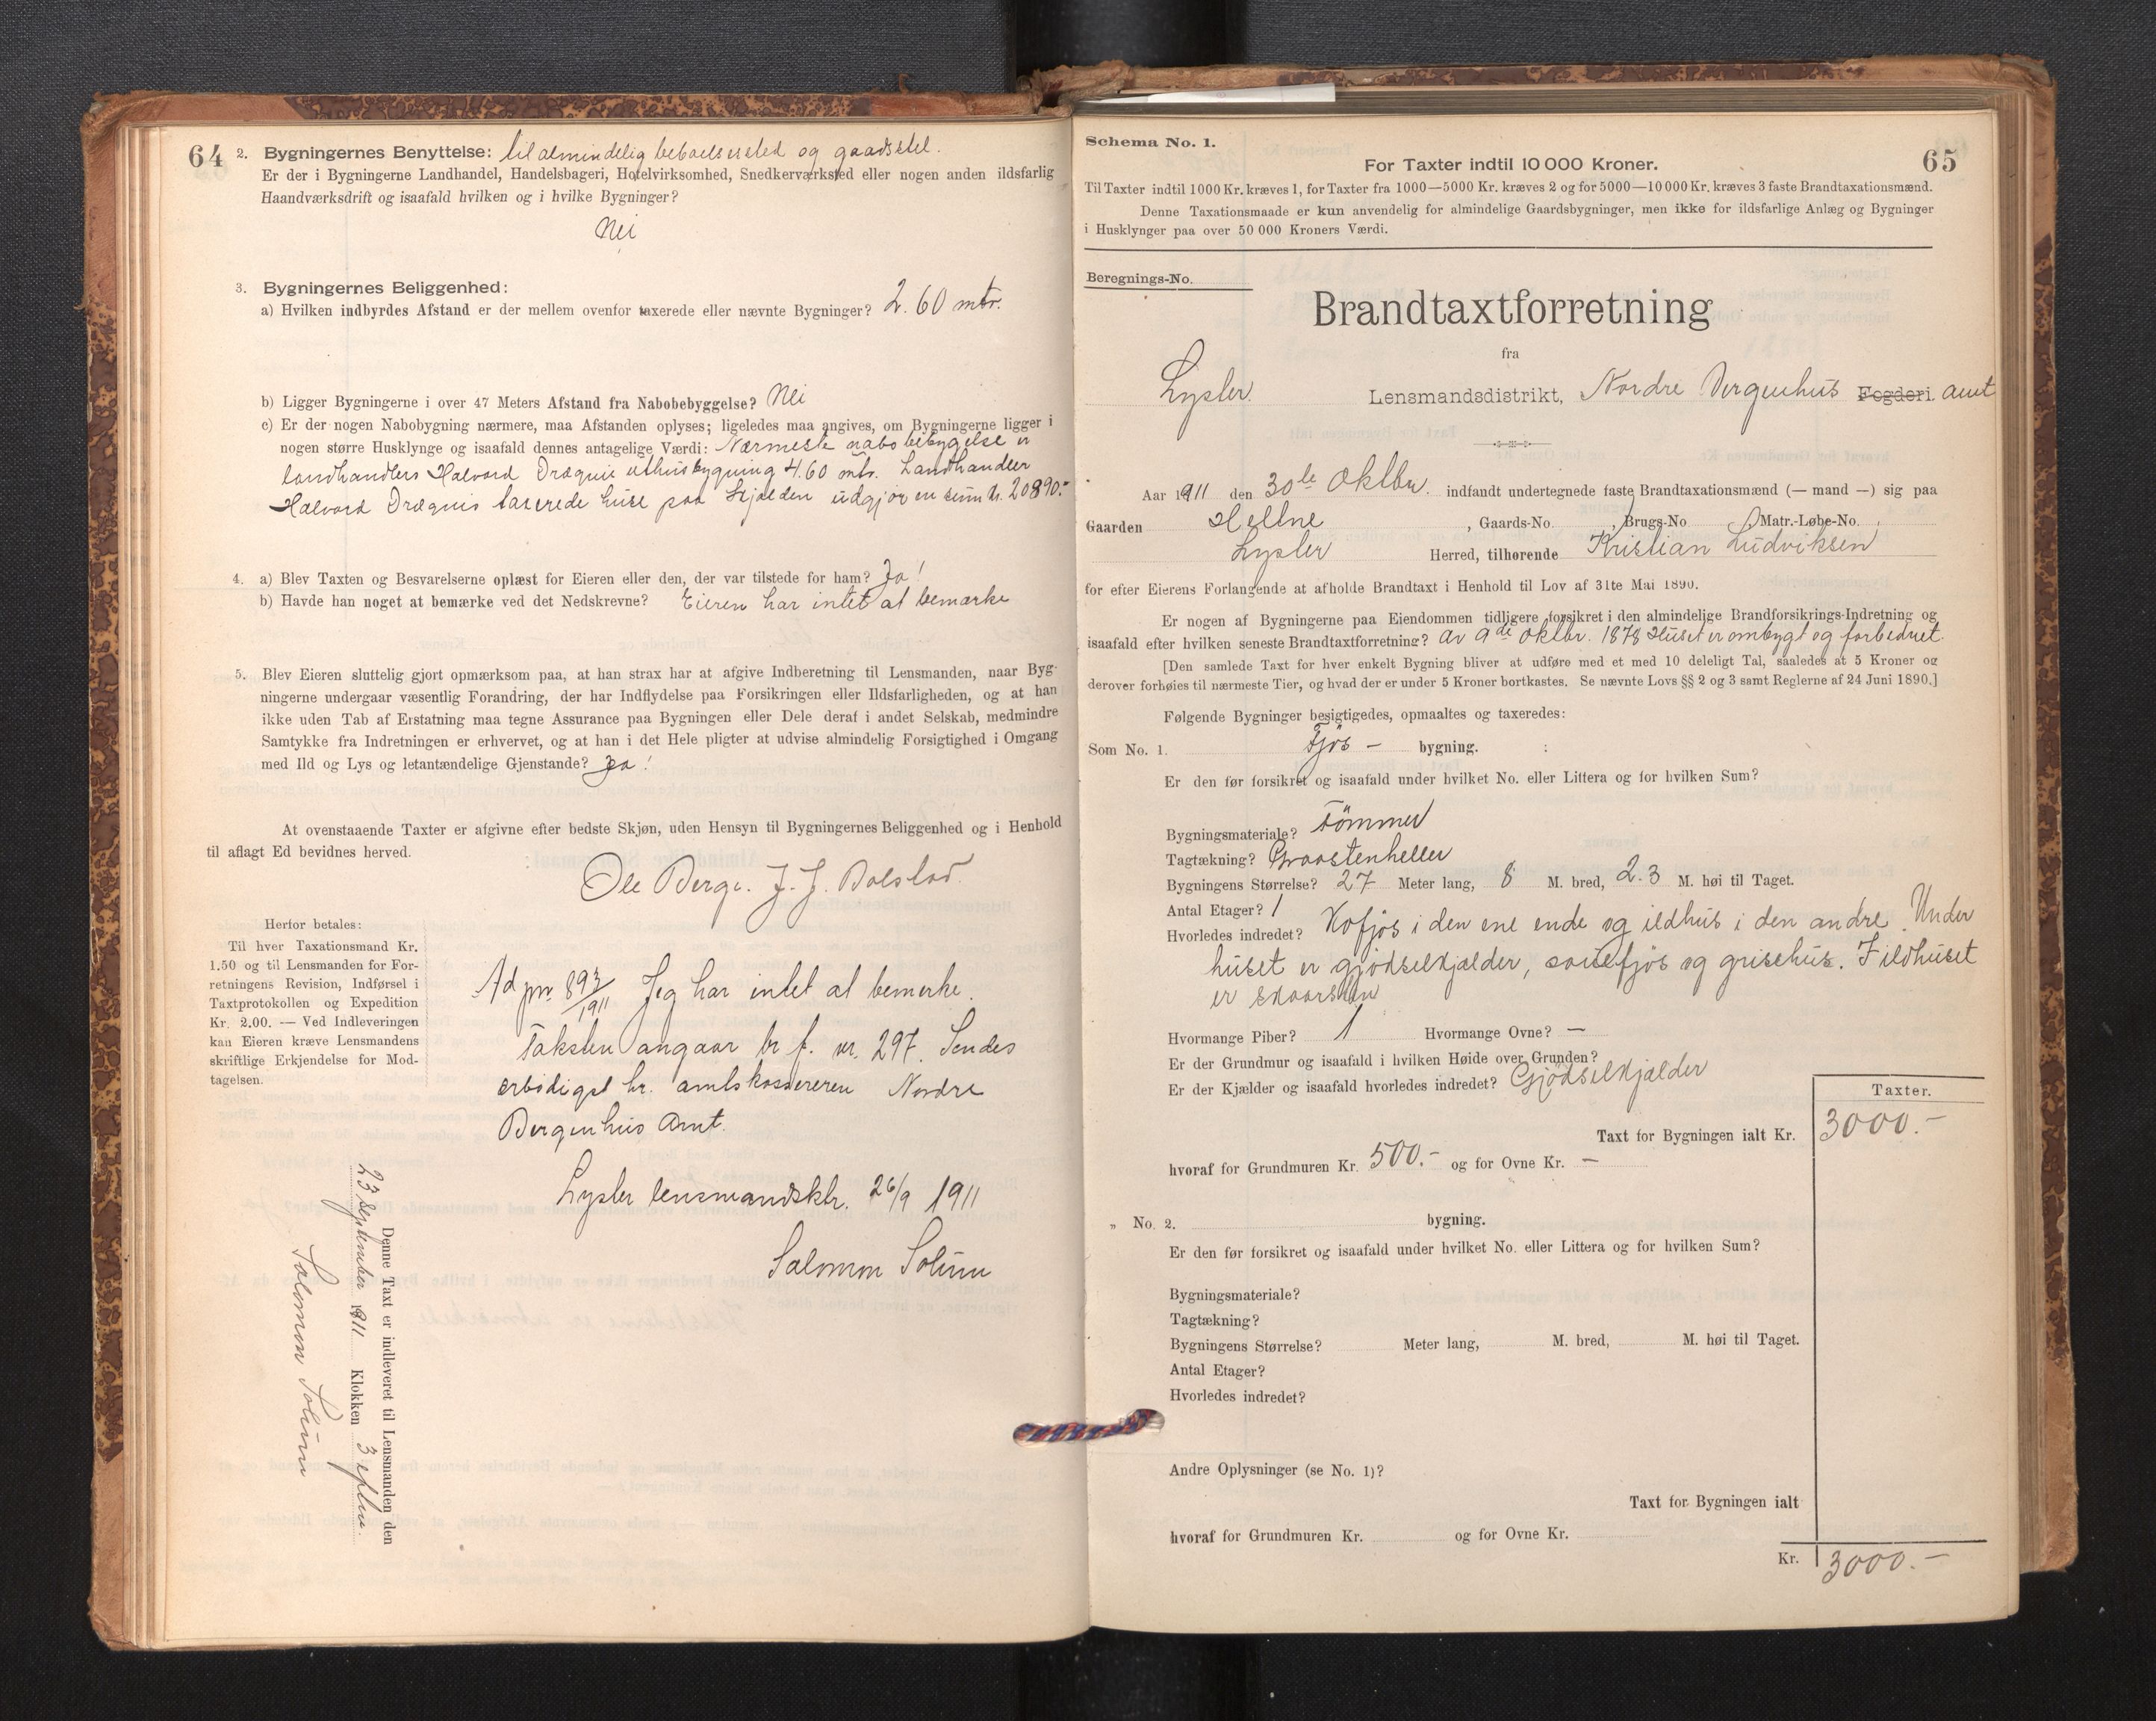 64
2. Bygningernes Benyttelse: til almindelig beboelsessted og gaardsstel.
Er der i Bygningerne Landhandel, Handelsbageri, Hotelvirksomhed, Snedkerværksted eller nogen anden ildsfarlig
Haandværksdrift og isaafald hvilken og i hvilke Bygninger?
Nei
3. Bygningernes Beliggenhed:
a) Hvilken indbyrdes Afstand er der mellem ovenfor taxerede eller nævnte Bygninger? 2.60 mtr.
b) Ligger Bygningerne i over 47 Meters Afstand fra Nabobebyggelse? Nei
c) Er der nogen Nabobygning nærmere, maa Afstanden oplyses; ligeledes maa angives, om Bygningerne ligger i
nogen større Husklynge og isaafald dennes antagelige Værdi: Nærmeste nabobebygelse er
landhandlers Halvord Drægnis uthusbygning 4.60 mtr. Landhandler
Halvord Drægnis taxerede huse paa Skjolden udgjør en sum kr. 20890.-
4. a) Blev Taxten og Besvarelserne oplæst for Eieren eller den, der var tilstede for ham? Ja!
b) Havde han noget at bemærke ved det Nedskrevne? Eieren har intet at bemærke
5. Blev Eieren sluttelig gjort opmærksom paa, at han strax har at afgive Indberetning til Lensmanden, naar Byg-
ningerne undergaar væsentlig Forandring, der har Indflydelse paa Forsikringen eller Ildsfarligheden, og at han
ikke uden Tab af Erstatning maa tegne Assurance paa Bygningen eller Dele deraf i andet Selskab, medmindre
Samtykke fra Indretningen er erhvervet, og at han i det Hele pligter at udvise almindelig Forsigtighed i Omgang
med Ild og Lys og letantændelige Gjenstande? Ja!
At ovenstaaende Taxter er afgivne efter bedste Skjøn, uden Hensyn til Bygningernes Beliggenhed og i Henhold
til aflagt Ed bevidnes herved.
Ole Berge. J. J. Bolstad
Herfor betales:
Til hver Taxationsmand Kr.
1.50 og til Lensmanden for For-
retningens Revision, Indførsel i
Taxtprotokollen og Expedition
Kr. 2.00. — Ved Indleveringen
kan Eieren kræve Lensmandens
skriftlige Erkjendelse for Mod-
tagelsen.
Ad pnr 893/1911 Jeg har intet at bemerke.
Taksten angaar br. f. nr. 297. Sendes
ærbødigst hr. amtskassereren Nordre
Bergenhus Amt.
Lyster lensmandsktr. 26/9 1911
Salomon Solum
Denne Taxt er indleveret til Lensmanden den
23 september 1911 Klokken 3 eftm.
Salomon Solum
65
Schema No. 1.
For Taxter indtil 10 000 Kroner.
Til Taxter indtil 1000 Kr. kræves 1, for Taxter fra 1000—5000 Kr. kræves 2 og for 5000—10 000 Kr. kræves 3 faste Brandtaxationsmænd.
Denne Taxationsmaade er kun anvendelig for almindelige Gaardsbygninger, men ikke for ildsfarlige Anlæg og Bygninger
i Husklynger paa over 50 000 Kroners Værdi.
Beregnings-No.
Brandtaxtforretning
fra
Lyster. Lensmandsdistrikt, Nordre Bergenhus Fogderi. amt
Aar 1911 den 30te Oktbr. indfandt undertegnede faste Brandtaxationsmænd (— mand —) sig paa
Gaarden Hellne, Gaards-No. , Brugs-No. , Matr.-Løbe-No. ,
Lyster Herred, tilhørende Kristian Ludviksen
for efter Eierens Forlangende at afholde Brandtaxt i Henhold til Lov af 31te Mai 1890.
Er nogen af Bygningerne paa Eiendommen tidligere forsikret i den almindelige Brandforsikrings-Indretning og
isaafald efter hvilken seneste Brandtaxtforretning? Av 9de oktbr. 1878 Huset er ombygt og forbedret.
[Den samlede Taxt for hver enkelt Bygning bliver at udføre med et med 10 deleligt Tal, saaledes at 5 Kroner og
derover forhøies til nærmeste Tier, og hvad der er under 5 Kroner bortkastes. Se nævnte Lovs §§ 2 og 3 samt Reglerne af 24 Juni 1890.]
Følgende Bygninger besigtigedes, opmaaltes og taxeredes:
Som No. 1. Fjös — bygning. :
Er den før forsikret og isaafald under hvilket No. eller Littera og for hvilken Sum?
Bygningsmateriale? Tömmer
Tagtækning? Graastenheller
Bygningens Størrelse? 27 Meter lang, 8 M. bred, 2.3 M. høi til Taget.
Antal Etager? 1
Hvorledes indredet? Kofjös i den ene ende og ildhus i den andre. Under
huset er gjödselkjælder, sauefjös og grisehus. I ildhuset
er skorsten
Hvormange Piber? 1 Hvormange Ovne? —
Er der Grundmur og isaafald i hvilken Høide over Grunden?
Er der Kjælder og isaafald hvorledes indredet? Gjödselkjælder
Taxter.
Taxt for Bygningen ialt Kr. 3000.-
hvoraf for Grundmuren Kr. 500.- og for Ovne Kr. —
„ No. 2. bygning.
Er den før forsikret og isaafald under hvilket No. eller Littera og for hvilken Sum?
Bygningsmateriale?
Tagtækning?
Bygningens Størrelse? Meter lang, M. bred, M. høi til Taget.
Antal Etager?
Hvorledes indredet?
Andre Oplysninger (se No. 1)?
Taxt for Bygningen ialt
hvoraf for Grundmuren Kr. og for Ovne Kr.
Kr. 3000.-